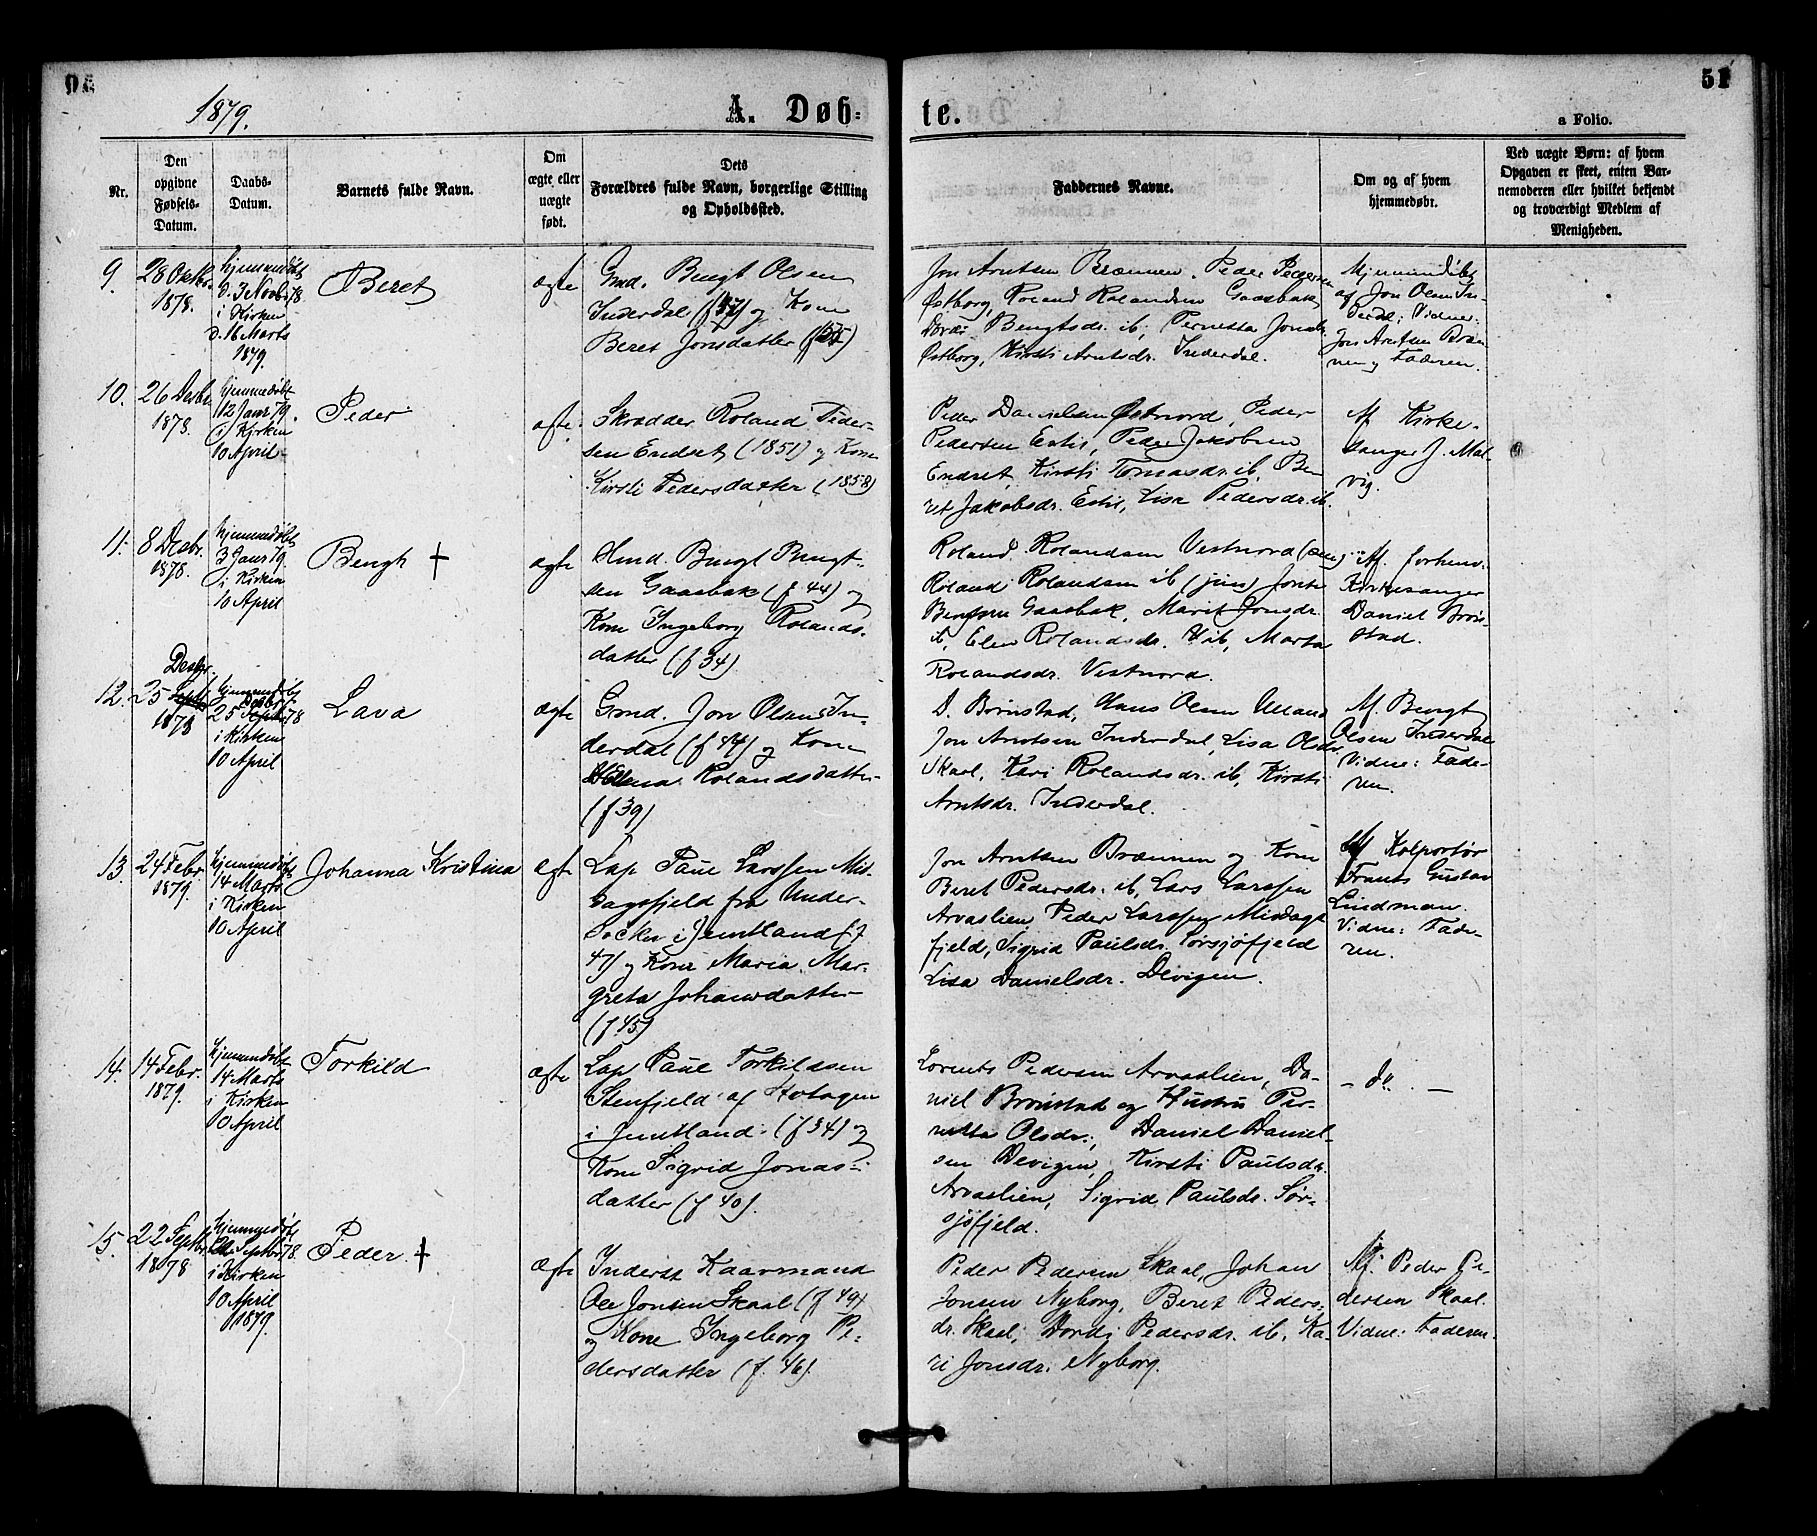 1879.
A. Døb-
te.
51
a Folio.
Nr.
Den
opgivne
Fødsels-
Datum.
Daabs-
Datum.
Barnets fulde Navn.
Om
ægte eller
uægte
født.
Dets
Forældres fulde Navn, borgerlige Stilling
og Opholdssted.
Faddernes Navne.
Om og af hvem
hjemmedøbt.
Ved uægte Børn: af hvem
Opgaven er skeet, enten Bar-
nemoderen eller hvilket bekjendt
og troværdigt Medlem af
Menigheden.
9.
28 Oktbr.
1878.
Hjemmedøbt
d. 3 Novbr 78.
i Kirken
d. 16 Marts
1879.
Beret
ægte
Gmd. Bengt Olsen
Inderdal (f 37) og Kone
Beret Jonsdatter
Jon Arntsen Brænnen, Peder Pedersen
Østborg, Roland Rolandsen Gaasbak,
Bengtsdr. ib, Pernesta Jonsdr.
Østborg, Kirsti Arntsdr. Inderdal.
Hjemmedøbt
af Jon Olsen In-
derdal; Vidner:
Jon Arntsen Bræn-
nen og Faderen.
10.
26 Desbr.
1878.
hjemmedøbt
12 Janr 79.
i Kirken
10 April
Peder
ægte
Skrædder Roland Peder-
sen Endset (1851) og Kone
Kirsti Pedersdatter (1858)
Peder Danielsen Østnord, Peder
Pedersen Estis, Peder Jakobsen
Endset, Kirsti Tomasdr. ib, Be-
ret Jakobsdr. Estis, Lisa Pedersdr. ib.
Af Kirke-
sanger J. Mal-
vig.
11.
8 Desbr.
1878.
hjemmedøbt
3 Janr 79.
i Kirken
10 April
Bengt †
ægte
Hmd. Bengt Bengt-
sen Gaasbak (f 44) og
Kone Ingeborg Rolands-
datter (f 34)
Roland Rolandsen Vestnord (sen)
Roland Rolandsen ib (jun) Jon
Bentsen Gaasbak, Marit Jonsdr.
ib, Elen Rolandsdr. ib, Marta
Rolandsdr. Vestnord.
Af forhenv.
Kirkesanger
Daniel Brøn-
stad.
12.
Desbr.
25 Septbr
1878
hjemmedøbt
Desbr
25 Septbr 78
i Kirken
10 April
Lava
ægte
Gmd. Jon Olsen In-
derdal (f 44) og Kone
Elena Rolandsdatter
(f 39)
D. Brønstad, Hans Olsen
Jon Arntsen Inderdal, Lisa Olsdr.
Skaal, Kari Rolandsdr. ib, Kirsti
Arntsdr. Inderdal.
Af Bengt
Olsen Inderdal
Vidne: Fade-
ren.
13.
24 Febr.
1879.
Hjemmedøbt
14 Marts
i Kirken
10 April
Johanna Kristina
ægte
Lap Paul Larssen Mid-
dagsfjeld fra Under-
socken i Jemtland (f.
47) og Kone Maria Mar-
greta Johansdatter
(f 45)
Jon Arntsen Brænnen og Kone
Beret Pedersdr. ib, Lars Larssen
Arvaslien, Peder Larssen Middags-
fjeld, Sigrid Paulsdr. Sørsjøfjeld
Lisa Danielsdr. Devigen.
Af Kolportør
Frants Gustav
Lindman.
Vidne: Fade-
ren.
14.
14 Febr.
1879.
Hjemmedøbt
14 Marts
i Kirken
10 April
Torkild
ægte
Lap Paul Torkildsen
Stenfjeld af Hotagen
i Jemtland (f 34) og
Kone Sigrid Jonas-
datter (f 40).
Lorents Pedersen Arvaslien, Da-
niel Brønstad og Hustru Per-
netta Olsdr., Daniel Daniel-
sen Devigen, Kirsti Paulsdr.
Arvaslien, Sigrid Paulsdr. Sør-
sjøfjeld.
- do. -
15.
22 Septbr
1878
Hjemmedøbt
22 Septbr 78.
i Kirken
10 April
1879.
Peder †
ægte
Inderst Haavmand
Ole Jonsen Skaal (f 49)
og Kone Ingeborg Pe-
dersdatter (f. 46).
Peder Pedersen Skaal, Johan
Jonsen Nyborg, Beret Peders-
dr. Skaal, Dordi Pedersdr. ib, Ka-
ri Jonsdr. Nyborg.
Af Peder Pe-
dersen Skaal.
Vidne: Faderen.